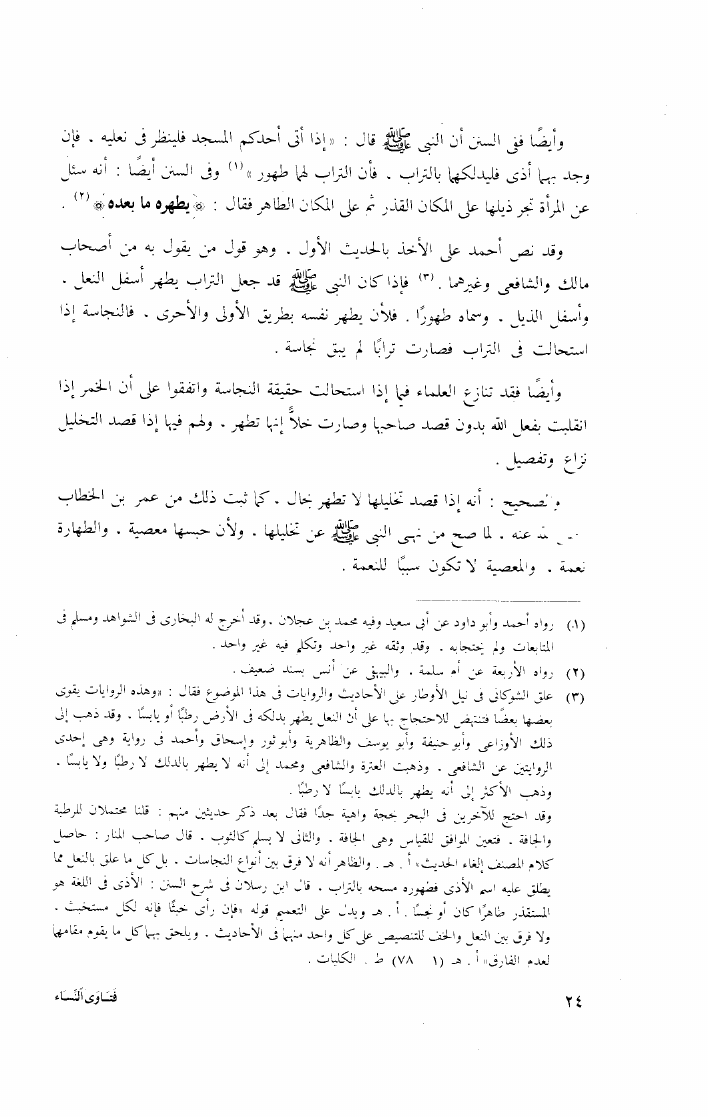 وأيضًا ففى السنن أن النبى ﷺ قال : « إذا أتى أحدكم المسجد فلينظر فى نعليه . فإن
وجد بهما أذى فليدلكهما بالتراب . فأن التراب لهما طهور »(١) وفى السنن أيضًا : أنه سئل
عن المرأة تجر ذيلها على المكان القذر ثم على المكان الطاهر فقال : ﴿ يطهره ما بعده ﴾(٢) .
وقد نص أحمد على الأخذ بالحديث الأول . وهو قول من يقول به من أصحاب
مالك والشافعى وغيرهما .(٣) فإذا كان النبى ﷺ قد جعل التراب يطهر أسفل النعل .
وأسفل الذيل . وسماه طهورًا . فلأن يطهر نفسه بطريق الأولى والأحرى . فالنجاسة إذا
استحالت فى التراب فصارت ترابًا لم يبق نجاسة .
وأيضًا فقد تنازع العلماء فيما إذا استحالت حقيقة النجاسة واتفقوا على أن الخمر إذا
انقلبت بفعل الله بدون قصد صاحبها وصارت خلاًّ إنها تطهر . ولهم فيها إذا قصد التخليل
نزاع وتفصيل .
والصحيح : أنه إذا قصد تخليلها لا تطهر بحال . كما ثبت ذلك من عمر بن الخطاب
عنه . لما صح من نهى النبى ﷺ عن تخليلها . ولأن حبسها معصية . والطهارة
نعمة . والمعصية لا تكون سببًا للنعمة .
(١) رواه أحمد وأبو داود عن أبى سعيد وفيه محمد بن عجلان . وقد أخرج له البخارى فى الشواهد ومسلم فى
المتابعات ولم يحتجا به . وقد وثقه غير واحد وتكلم فيه غير واحد .
(٢) رواه الأربعة عن أم سلمة . والبيهقى عن أنس بسند ضعيف .
(٣) علق الشوكانى فى نيل الأوطار على الأحاديث والروايات فى هذا الموضوع فقال : «وهذه الروايات يقوى
بعضها بعضًا فتنهض للاحتجاج بها على أن النعل يطهر بدلكه فى الأرض رطبًا أو يابسًا . وقد ذهب إلى
ذلك الأوزاعى وأبو حنيفة وأبو يوسف والظاهرية وأبو ثور وإسحاق وأحمد فى رواية وهى إحدى
الروايتين عن الشافعى . وذهبت العترة والشافعى ومحمد إلى أنه لا يطهر بالدلك لا رطبًا ولا يابسًا .
وذهب الأكثر إلى أنه يطهر بالدلك يابسًا لا رطبًا .
وقد احتج للآخرين فى البحر بحجة واهية جدًا فقال بعد ذكر حديثين منهم : قلنا محتملان للرطبة
والجافة . فتعين الموافق للقياس وهى الجافة . والثانى لا يسلم كالثوب . قال صاحب المنار : حاصل
كلام المصنف إلغاء الحديث» أ . هـ . والظاهر أنه لا فرق بين أنواع النجاسات . بل كل ما علق بالنعل مما
يطلق عليه اسم الأذى فطهوره مسحه بالتراب . قال ابن رسلان فى شرح السنن : الأذى فى اللغة هو
المستقذر طاهرًا كان أو نجسًا . أ . هـ ويدل على التعميم قوله «فإن رأى خبثًا فإنه لكل مستخبث .
ولا فرق بين النعل والخف للتنصيص على كل واحد منهما فى الأحاديث . ويلحق بهما كل ما يقوم مقامهما
لعدم الفارق» أ . هـ (١ ٧٨) ط . الكليات .
٢٤ فتاوى النساء